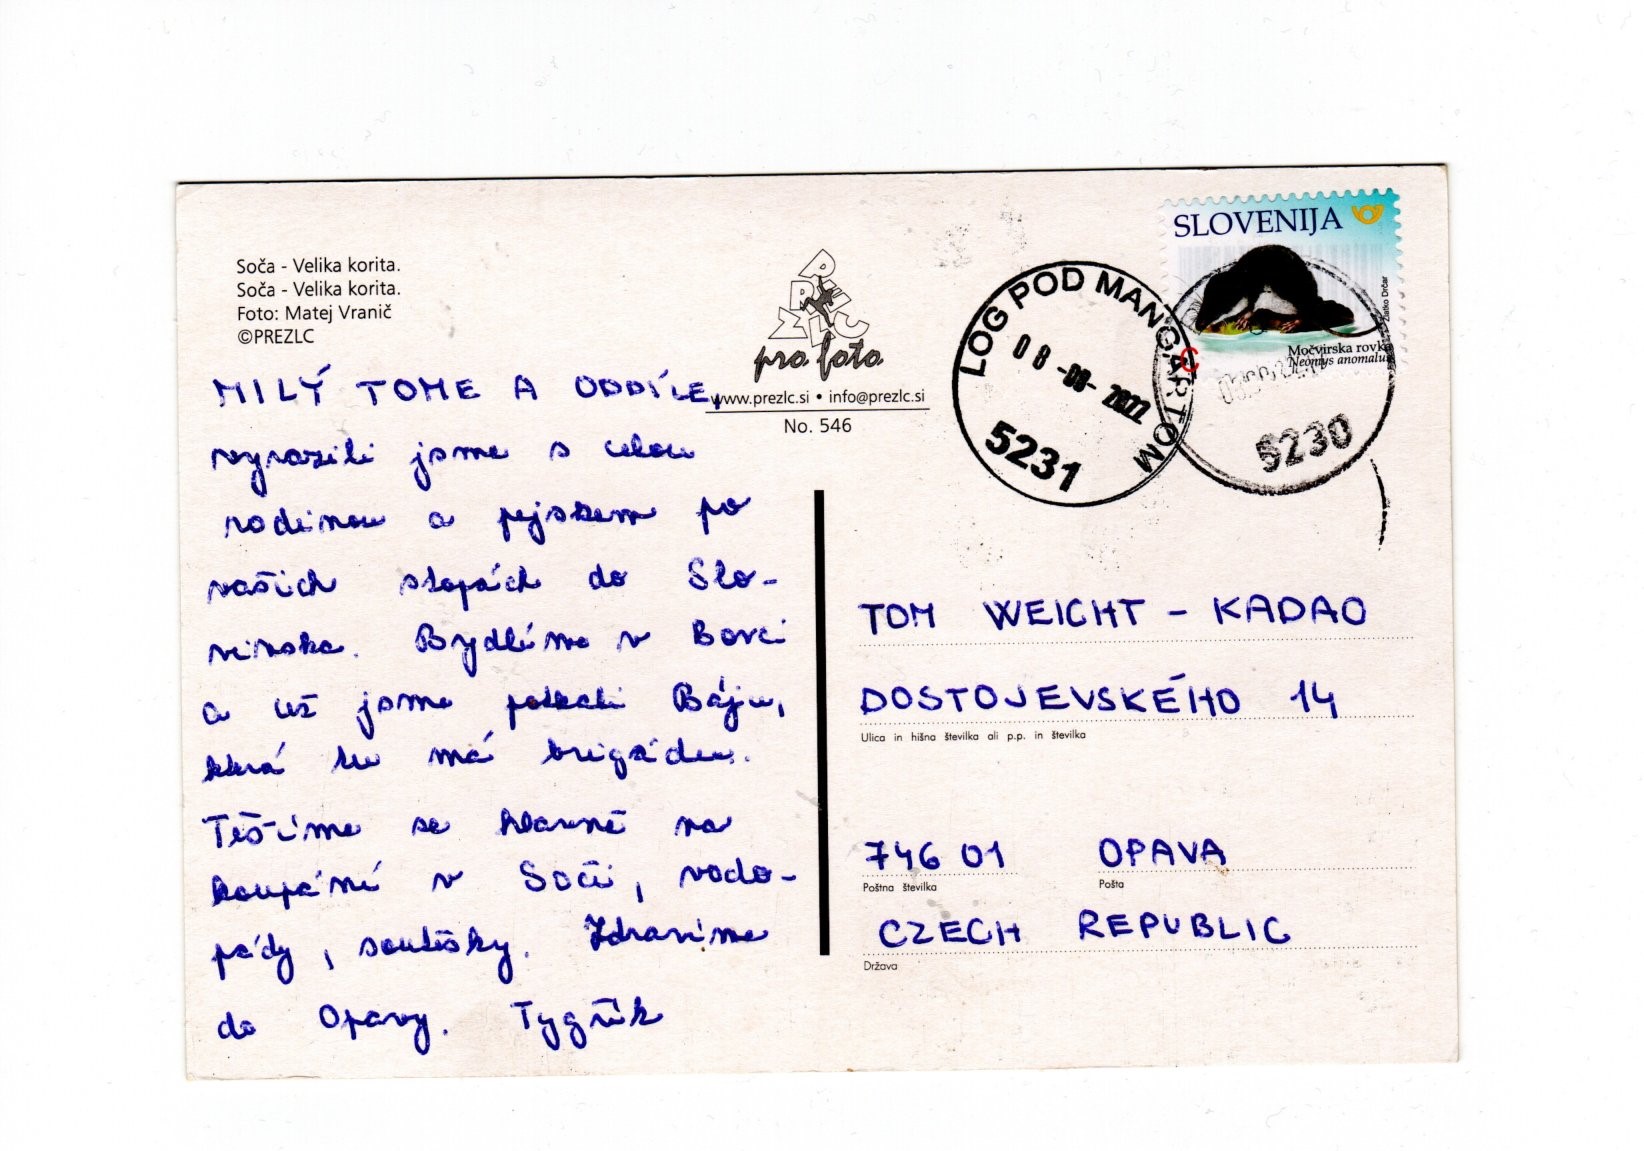 Soča - Velika korita.
Soča - Velika korita.
Foto: Matej Vranič
©PREZLC
PREZLC
pro foto
www.prezlc.si • info@prezlc.si
No. 546
SLOVENIJA
Zlatko Drčar
Močvirska rovka
Neomys anomalus
C
LOG POD MANGARTOM
08-08-2022
5231
5230
MILÝ TOME A ODDÍLE,
vyrazili jsme s celou
rodinou a pejskem po
vašich stopách do Slo-
vinska. Bydlíme v Bovci
a už jsme potkali Báju,
která tu má brigádu.
Těšíme se hlavně na
koupání v Soči, vodo-
pády, soutěsky. Zdravíme
do Opavy. Tygřík
TOM WEIGHT - KADAO
DOSTOJEVSKÉHO 14
Ulica in hišna številka ali p.p. in številka
746 01 OPAVA
Poštna številka Pošta
CZECH REPUBLIC
Država